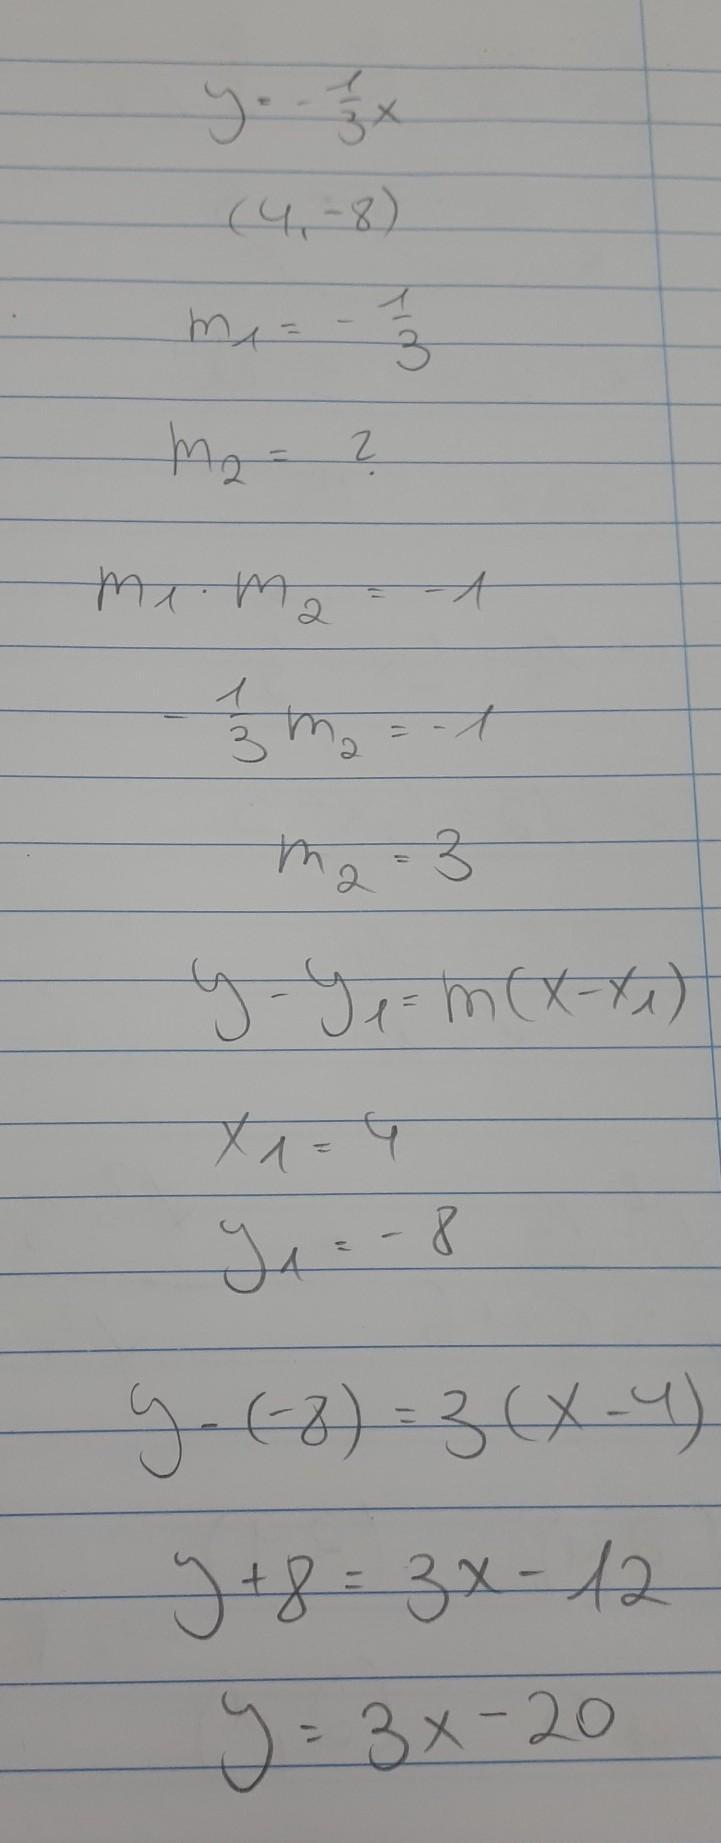 y = -1/3 x
(4, -8)
m₁ = -1/3
m₂ = ?
m₁ · m₂ = -1
-1/3 m₂ = -1
m₂ = 3
y - y₁ = m(x - x₁)
x₁ = 4
y₁ = -8
y - (-8) = 3(x - 4)
y + 8 = 3x - 12
y = 3x - 20